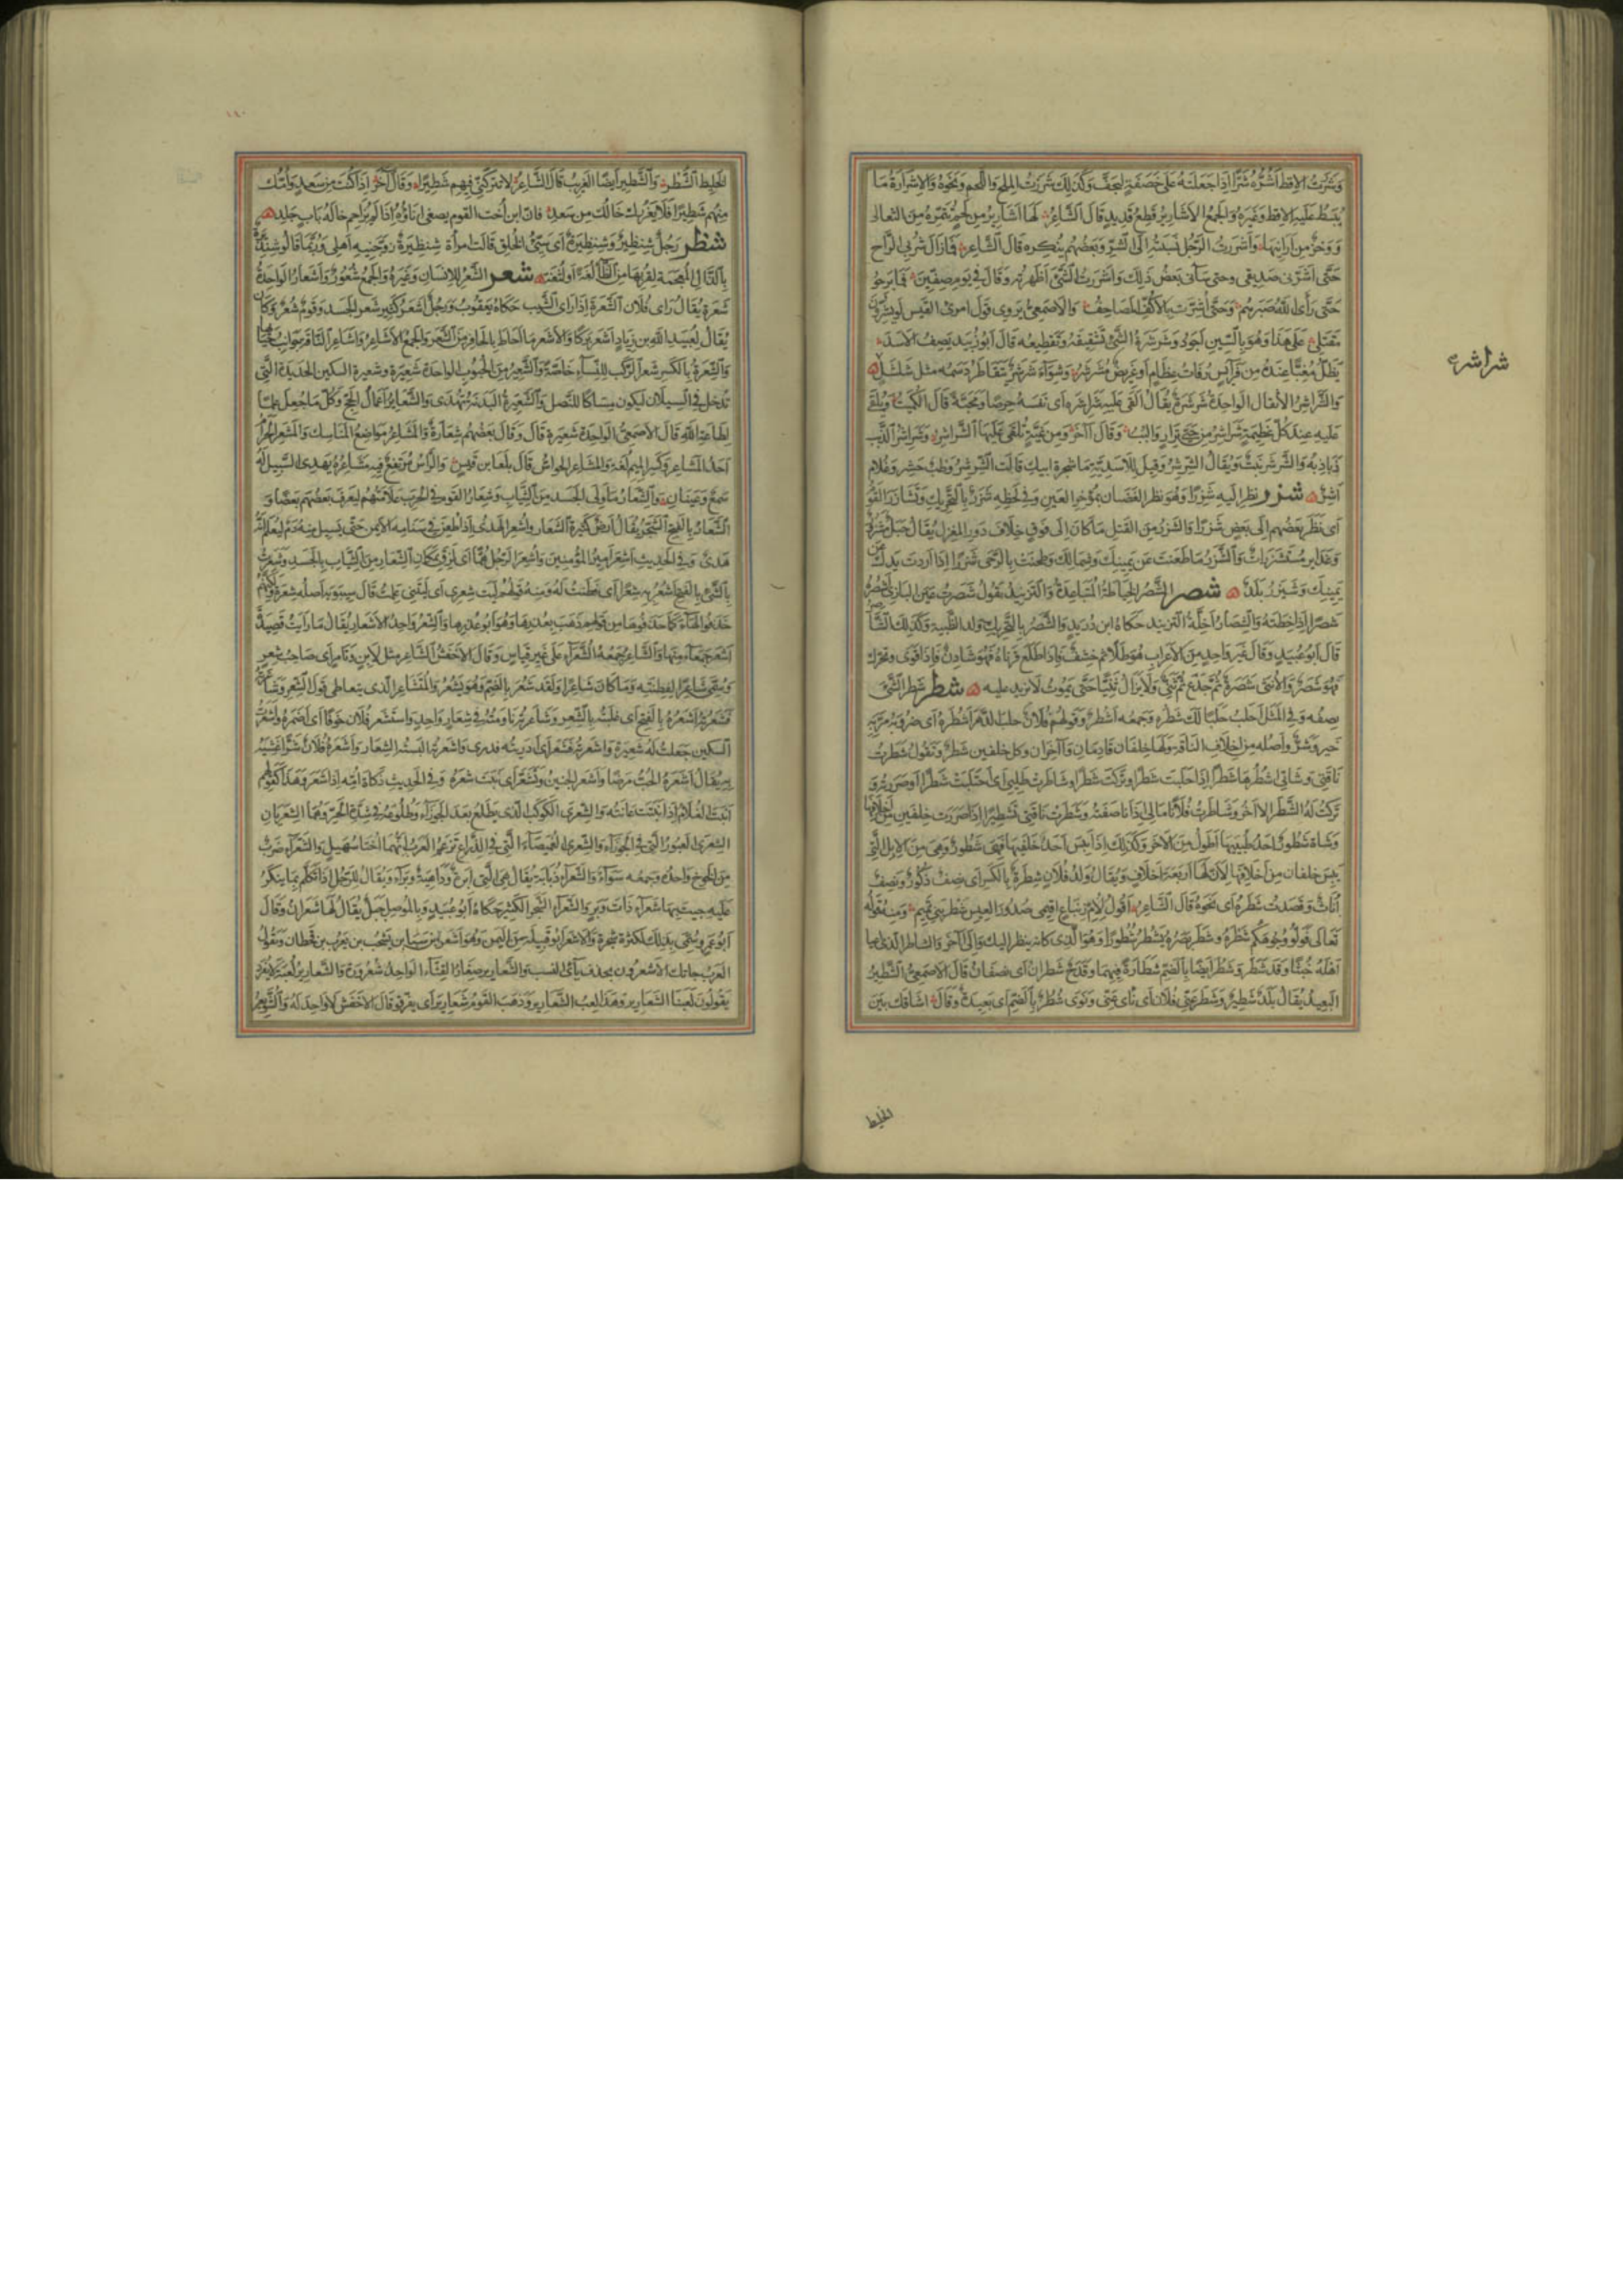 وشررت الاقط اشره شرا اذا جعلته على خصفة ليجف وكذلك شررت الملح واللحم ونحوه والاشرارة ما
يبسط عليه الاقط وغيره والجمع الاشارير قطع قديد قال الشاعر لها اشارير من لحم تتمره من الثعالى
ووخز من ارانيها واشررت الرجل نسبته الى الشر وبعضهم ينكره قال الشاعر فما زال شربى الراح
حتى اشرنى صديقى وحتى سآنى بعض ذلك واشررت الشئ اظهرته وقال فى يوم صفين فما برحوا
حتى رأى الله صبرهم وحتى اشرت بالاكف المصاحف والاصمعى يروى قول امرئ القيس لو يشرون
مقتلى على هذا وهو بالسين اجود وشرشرة الشئ تشقيقه وتقطيعه قال ابو زبيد يصف الاسد
يظل مغبا عنده من فرايس رفات عظام او غريض مشرشر وشواء شرشر يتقاطر دسمه مثل شلشل
والشراشر الاثقال الواحدة شرشرة يقال القى عليه شراشره اى نفسه حرصا ومحبة قال الكميت ويلقى
عليه عند كل عظيمة شراشر من حيى نزار والبب وقال آخر ومن غية تلقى عليها الشراشر وشراشر الذنب
ذباذبه والشرشر نبت ويقال الشرشر وقيل للاسدية ما شجرة ابيك قالت الشرشر وطب حشر وغلام
اشر شزر نظر اليه شزرا وهو نظر الغضبان بمؤخر العين وفى لحظه شزر بالتحريك وتشازر القوم
اى نظر بعضهم الى بعض شزرا والشزر من الفتل ما كان الى فوق خلاف دور المغزل يقال حبل مشزور
وغداير مستشزرات والشزر ما طعنت عن يمينك وشمالك وطحنت بالرحى شزرا اذا اردت يدك عن
يمينك وشيزر بلد شصر الشصر الخياطة المتباعدة والتزنيد يقول شصرت عين البازى اشصره
شصرا اذا خطته والشصار اخلة التزنيد حكاه ابن دريد والشصر بالتحريك ولد الظبية وكذلك الشاصر
قال ابو عبيد وقال غير واحد من الاعراب هو طلا ثم خشف فاذا طلع قرناه فهو شادن فاذا قوى وتحرك
فهو شصر والانثى شصرة ثم جذع ثم ثنى ولا يزال ثنيا حتى يموت لا يزيد عليه شطر شطر الشئ
نصفه وفى المثل احلب حلبا لك شطره وجمعه اشطر وقولهم فلان حلب الدهر اشطره اى ضروبه مر به
خير وشر واصله من اخلاف الناقة ولها خلفان قادمان وآخران وكل خلفين شطر وتقول شطرت
ناقتى وشاتى اشطرها شطرا اذا حلبت شطرا وتركت شطرا وشاطرت طليى اى احتلبت شطرا او صررته و
تركت له الشطر الآخر وشاطرت فلانا مالى اذا ناصفته وشطرت ناقتى تشطيرا اذا صررت خلفين من اخلافها
وشاة شطور احد طبييها اطول من الآخر وكذلك اذا يبس احد خلفيها فهى شطور وهى من الابل التى
يبس خلفان من اخلافها لان لها اربعة اخلاف ويقال ولد فلان شطرة بالكسر اى نصف ذكور ونصف
اناث وقصدت شطره اى نحوه قال الشاعر اقول لام زنباع اقيمى صدور العيس شطر بنى تميم ومنه قوله
تعالى فولوا وجوهكم شطره وشطر بصره يشطر شطورا وهو الذى كانه ينظر اليك والى آخر والشاطر الذى اعيا
اهله خبثا وقد شطر وشطر ايضا بالضم شطارة فيهما وقدح شطران اى نصفان قال الاصمعى الشطير
البعيد يقال بلد شطير وشطر عنى فلان اى نأى عنى ونوى شطر بالضم اى بعيدة وقال اشاقك بين
شراشره
الخليط
الخليط الشطر والشطير ايضا الغريب قال الشاعر لا تتركنى فيهم شطيرا وقال آخر اذا كنت من سعد وامك
منهم شطيرا فلا يغررك خالك من سعد فان ابن اخت القوم يصغى اناؤه اذا لم يزاحم خاله باب جلد
شنظر رجل شنظير وشنظيرة اى سيئ الخلق قالت امرأة شنظيرة زوجنيه اهلى وربما قالوا شنذيرة
بالذال المعجمة لقربها من الظا لغة او لثغة شعر الشعر للانسان وغيره والجمع شعور واشعار الواحدة
شعرة يقال راى فلان الشعرة اذا راى الشيب حكاه يعقوب ورجل اشعر كثير شعر الجسد وقوم شعر وكان
يقال لعبيد الله بن زياد اشعر بركا والاشعر ما احاط بالحافر من الشعر والجمع الاشاعر واشاعر الناقة جوانب حيائها
والشعرة بالكسر شعر الركب للنساء خاصة والشعير من الحبوب الواحدة شعيرة وشعيرة السكين الحديدة التى
تدخل فى السيلان ليكون مساكا للنصل والشعيرة البدنة تهدى والشعاير اعمال الحج وكل ما جعل علما
لطاعة الله قال الاصمعى الواحدة شعيرة قال وقال بعضهم شعارة والمشاعر مواضع المناسك والمشعر الحرام
احد المشاعر وكسر الميم لغة والمشاعر الحواس قال بلعا بن قيس والراس مرتفع فيه مشاعره يهدى السبيل له
سمع وعينان والشعار ما ولى الجسد من الثياب وشعار القوم فى الحرب علامتهم ليعرف بعضهم بعضا و
الشعار بالفتح الشجر يقال ارض كثيرة الشعار واشعر الهدى اذا طعن فى سنامه الايمن حتى يسيل منه دم ليعلم انه
هدى وفى الحديث اشعر امير المؤمنين واشعر الرجل هما اى لزق بمكان الشعار من الثياب بالجسد وشعرت
بالشئ بالفتح اشعر به شعرا اى فطنت له ومنه قولهم ليت شعرى اى ليتنى علمت قال سيبويه اصله شعرة ولكنهم
حذفوا الهاء كما حذفوها من قولهم ذهب بعذرها وهو ابو عذرها والشعر واحد الاشعار يقال ما رايت قصيدة
اشعر جمعاء منها والشاعر جمعه الشعراء على غير قياس وقال الاخفش الشاعر مثل لابن وتامر اى صاحب شعر
وسمى شاعرا لفطنته وما كان شاعرا ولقد شعر بالضم وهو يشعر والمتشاعر الذى يتعاطى قول الشعر وشاعرته
فشعرته اشعره بالفتح اى غلبته بالشعر وشاعرته ناومته فى شعار واحد واستشعر فلان خوفا اى اضمره واشعرت
السكين جعلت له شعيرة واشعرته فشعر اى ادريته فدرى واشعرته البسته الشعار واشعره فلان شرا غشيه
به يقال اشعره الحب مرضا واشعر الجنين وتشعر اى نبت شعره وفى الحديث ذكاة امه اذا اشعر وهذا كقولهم
انبت الغلام اذا نبتت عانته والشعرى الكوكب الذى يطلع بعد الجوزاء وطلوعه فى شدة الحر وهما الشعريان
الشعرى العبور التى فى الجوزاء والشعرى الغميصاء التى فى الذراع تزعم العرب انهما اختا سهيل والشعراء ضرب
من الخوخ واحده وجمعه سواء والشعراء ذبابة يقال هى التى لها ابرة وداهية وبراء ويقال للرجل اذا تكلم بما ينكر
عليه جيت بها شعراء ذات وبر والشعراء الشجر الكثير حكاه ابو عبيد وبالموصل جبل يقال لها شعران وقال
ابو عمرو سمى بذلك لكثرة شجره والاشعر ابو قبيلة من اليمن وهو اشعر بن سبا بن يشجب بن يعرب بن قحطان وتقول
العرب جاتك الاشعرون بحذف يائى النسب والشعارير صغار القثاء الواحد شعرورة والشعارير لعبة لا تفرد
يقولون لعبنا الشعارير وهذا لعب الشعارير وذهب القوم شعارير اى تفرقوا قال الاخفش لا واحد له والشويعر